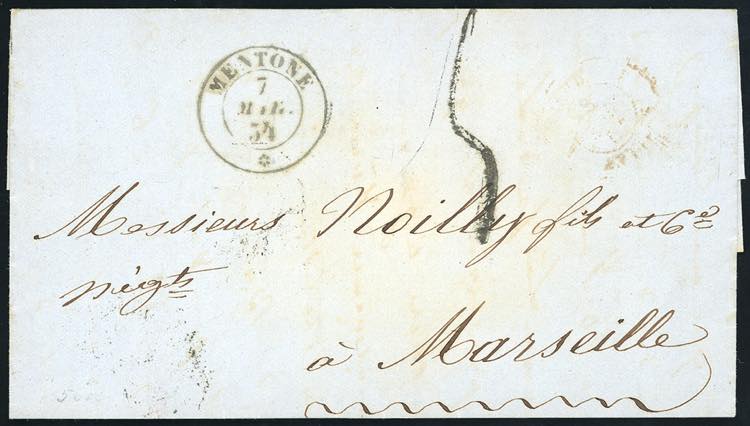 MENTONE
7
54
5
Messieurs Noilly fils et Cie
négts
à Marseille